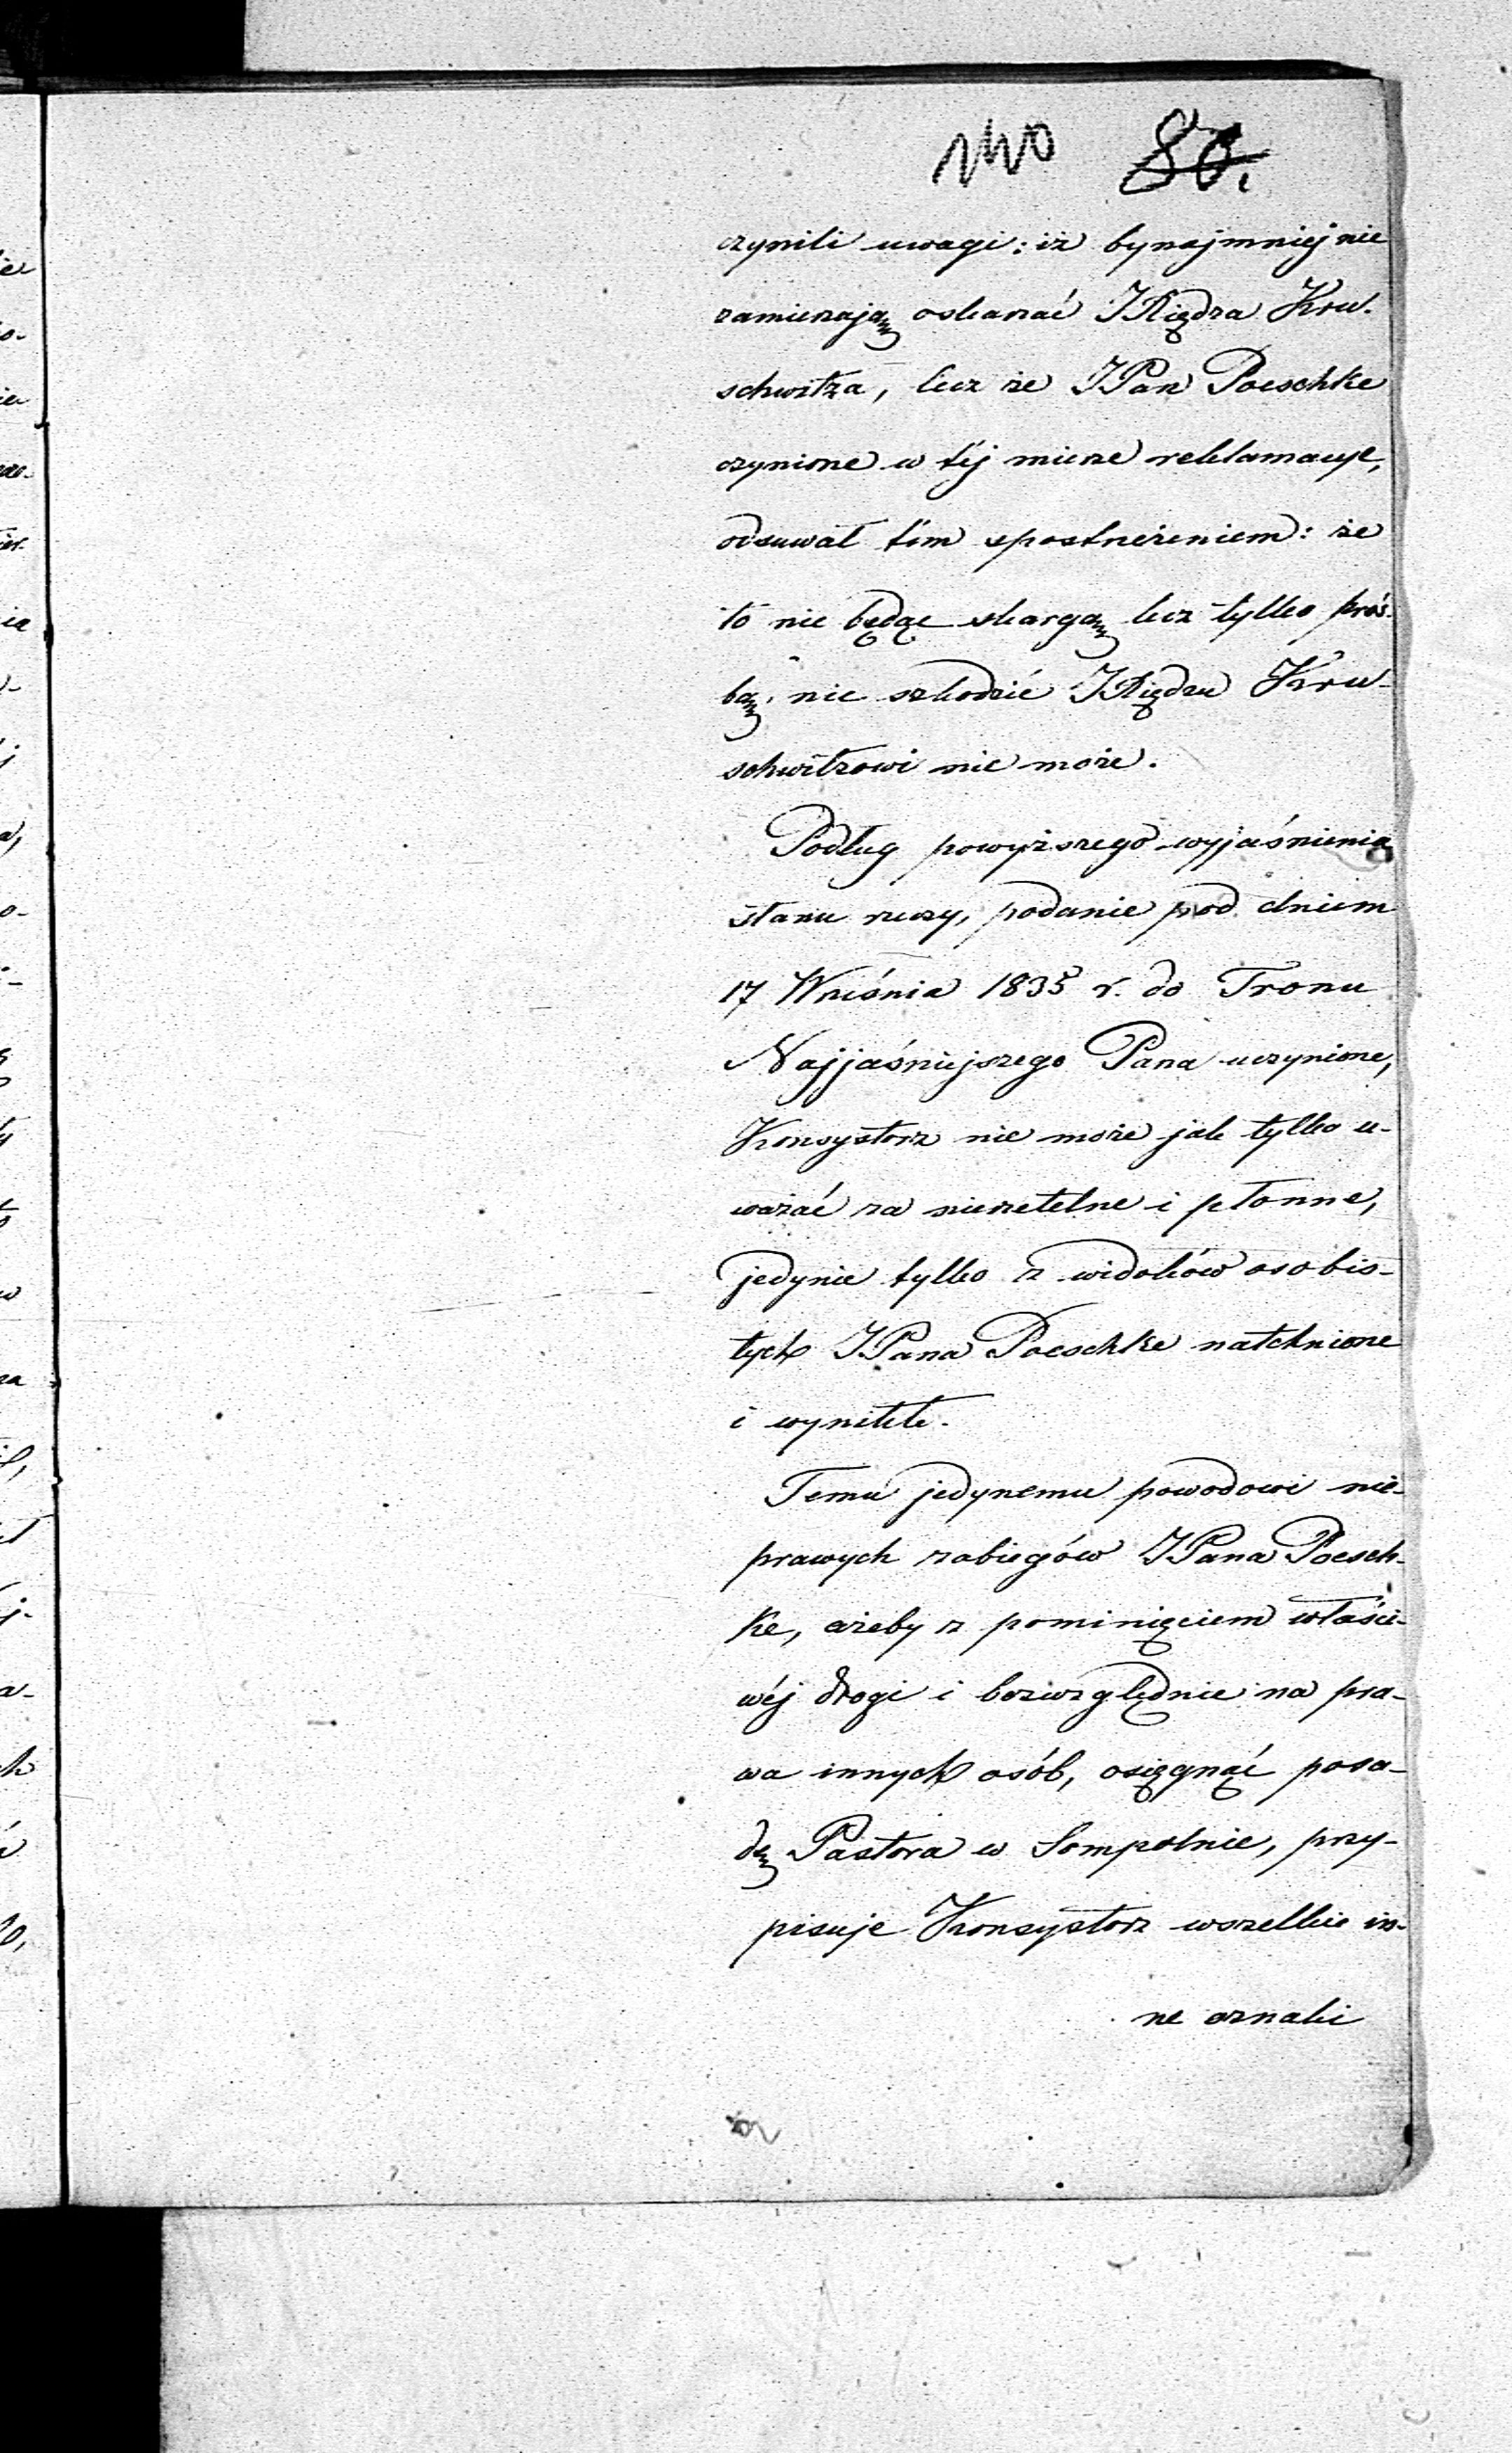 140 80.
czynili uwagi: iż bynajmniej nie
zamierzają oskarzać JXiędza Kru-
schwitza, lecz że JPan Poeschke
czynione w téj mierze reklamacye,
odsuwał tém spostrzeżeniem: że
to nie będąc skargą lecz tylko proś-
bą, nic szkodzić JXiędzu Kru-
schwitzowi nie może.
Podług powyższego wyjaśnienia
stanu rzeczy, podanie pod dniem
17 Września 1835 r. do Tronu
Najjaśniejszego Pana uczynione,
Konsystorz nie może jak tylko u-
ważać za nierzetelne i płonne,
jedynie tylko z widoków osobis-
tych JPana Poeschke natchnione
i wynikłe.
Temu jedynemu powodowi nie-
prawych zabiegów JPana Poesch-
ke, ażeby z pominięciem właści-
wéj drogi i bezwzględnie na pra-
wa innych osób, osięgnąć posa-
dę Pastora w Sompolnie, przy-
pisuje Konsystorz wszelkie in-
ne oznaki